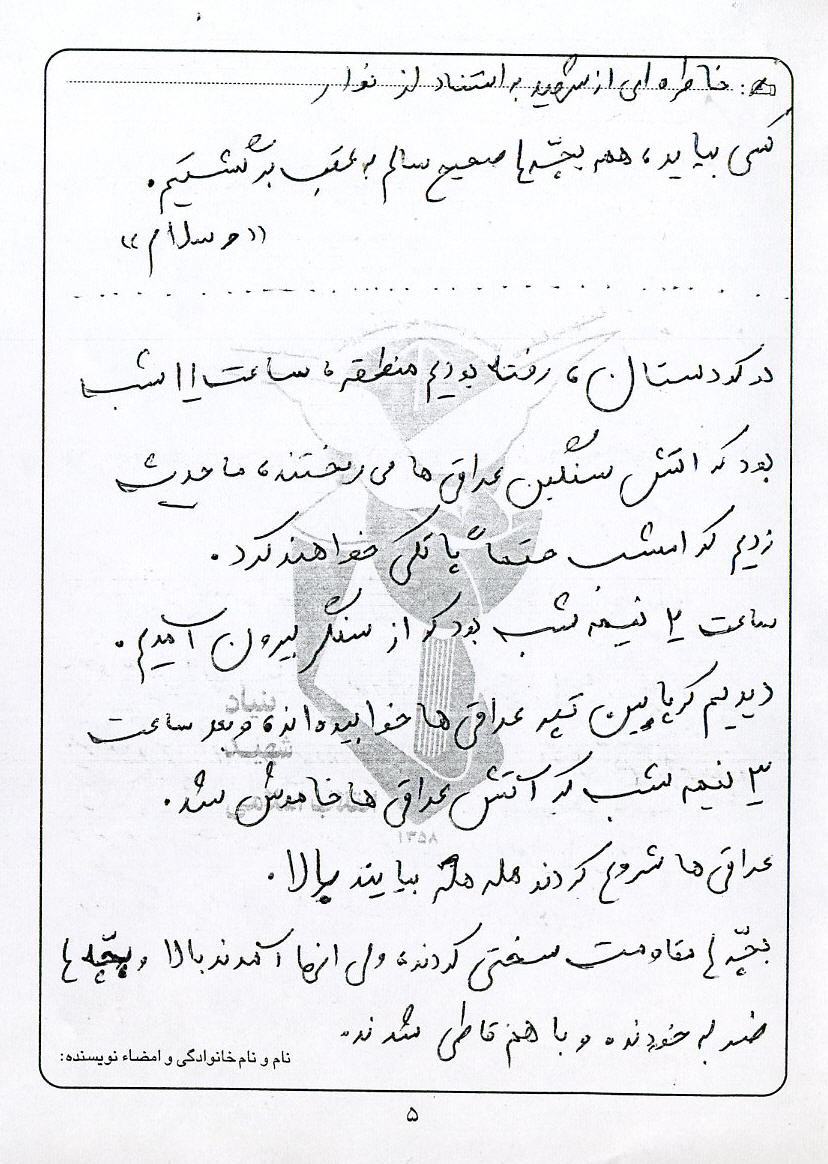 خاطره ای از شهید به استناد از نوار
کسی بیاید، همه بچّه ها صحیح سالم به عقب برگشتیم.
«وسلام»
در کردستان، رفته بودیم منطقه، ساعت ۱۱ شب
بود که اتش سنگین عراقی ها می ریختند، ما حدث
زدیم که امشب حتماً پاتکی خواهند کرد.
ساعت ۲ نیمه شب بود که از سنگر بیرون آمدیم.
دیدیم که پایین تپه عراقی ها خوابیده اند، و بعد ساعت
۳ نیمه شب که آتش عراقی ها خاموش شد.
عراقی ها شروع کردند هله هله بیایند بالا.
بچّه ها مقاومت سختی کردند، ولی انها آمدند بالا و بچّه ها
ضربه خوردند و با هم قاطی شدند.
بنیاد
شهید
۱۳۵۸
نام و نام خانوادگی و امضاء نویسنده:
۵